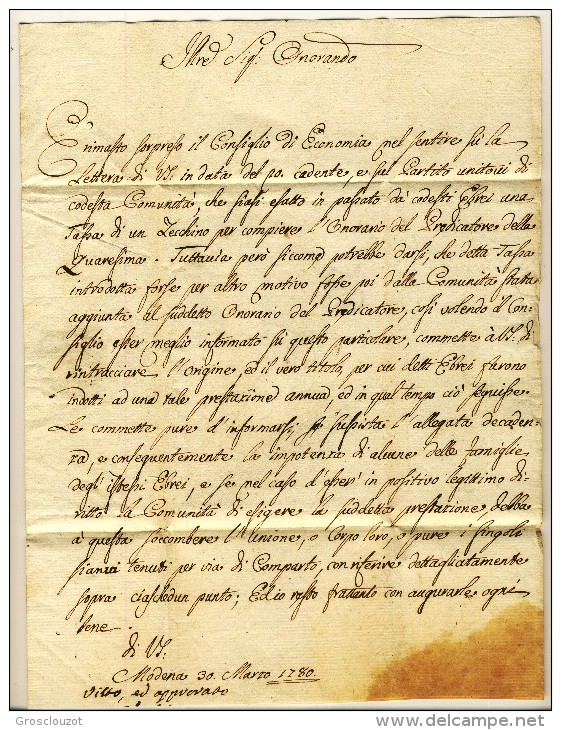 Illre Sig: Onorando
È rimasto sorpreso il Consiglio di Economia nel sentire sù la
Lettera di VS. in data del 10. cadente, e sul Partito unitovi di
codesta Comunità, che siasi esatto in passato dà codesti Ebrei una
Tassa di un Zecchino per compiere l'Onorario del Predicatore della
Quaresima. Tuttavia però siccome potrebbe darsi, che detta Tassa
introdotta forse per altro motivo fosse poi dalla Comunità stata
aggiunta al suddetto Onorario del Predicatore, così volendo il Con-
siglio esser meglio informato sù questo particolare, commetto à VS. di
rintracciare l'Origine, ed il vero titolo, per cui detti Ebrei furono
indotti ad una tale prestazione annua, ed in qual tempo ciò seguisse
Le commette pure d'informarsi, se sussista l'allegata decaden-
za, e conseguentemente la impotenza di alcune delle famiglie
degl'istessi Ebrei, e se nel caso d'esser in positivo legittimo di-
ritto la Comunità di esigere la suddetta prestazione, debba
à questa soccombere l'Unione, o Corpo loro, o pure i singoli
sianvi tenuti per via di Comparto, con riferire dettagliatamente
sopra ciaschedun punto; Ed io resto frattanto con augurarle ogni
bene.
di VS.
Modena 30. Marzo 1780.
Visto, ed approvato
Grosclouzot
www.delcampe.net